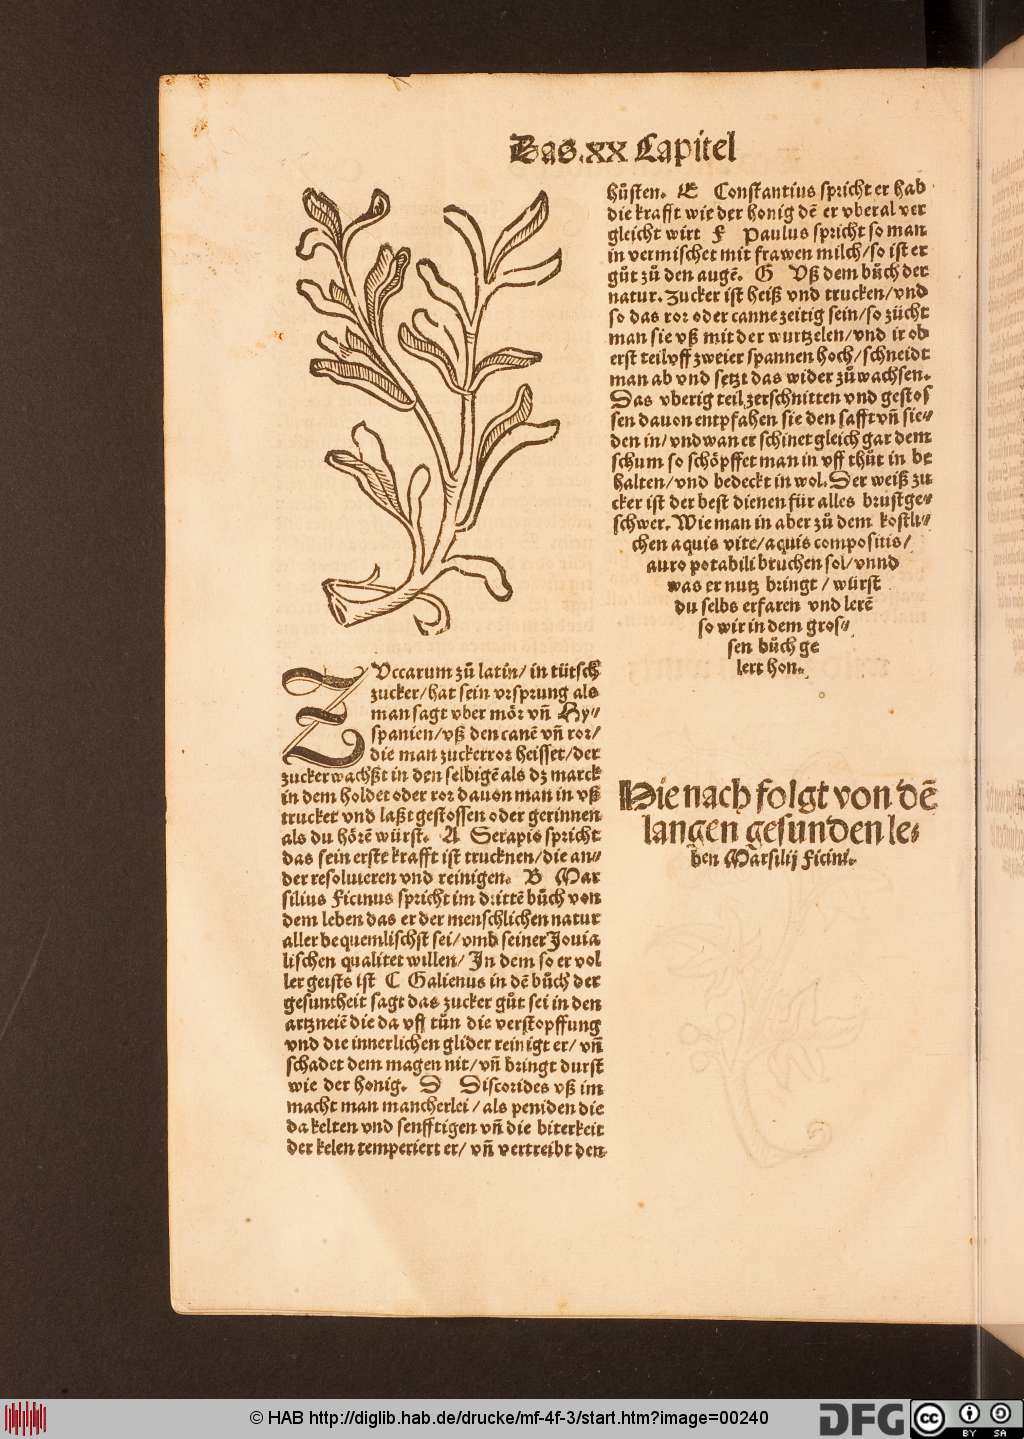 Das.xx Capitel
ZVccarum zů latin/ in tütsch
zucker/hat sein vrsprung als
man sagt vber mör vn̄ Hy⸗
spanien/vß den canē vn̄ ror/
die man zuckerror heisset/der
zucker wachßt in den selbigē als dz marck
in dem holder oder ror dauon man in vß
trucket vnd laßt gestossen oder gerinnen
als du hörē würst. A Serapis spricht
das sein erste krafft ist trucknen/die an⸗
der resoluieren vnd reinigen. B Mar
silius Ficinus spricht im drittē bůch von
dem leben das er der menschlichen natur
aller bequemlischst sei/vmb seiner Jouia
lischen qualitet willen/ In dem so er vol
ler geists ist C Galienus in dē bůch der
gesuntheit sagt das zucker gůt sei in den
artzneiē die da vff tůn die verstopffung
vnd die innerlichen glider reinigt er/ vn̄
schadet dem magen nit/vn̄ bringt durst
wie der honig. D Discorides vß im
macht man mancherlei/als peniden die
da kelten vnd senfftigen vn̄ die biterkeit
der kelen temperiert er/ vn̄ vertreibt den
hůsten. E Constantius spricht er hab
die krafft wie der honig dē er vberal ver
gleicht wirt F Paulus spricht so man
in vermischet mit frawen milch/so ist er
gůt zů den augē. G Vß dem bůch der
natur. Zucker ist heiß vnd trucken/vnd
so das ror oder canne zeitig sein/so zücht
man sie vß mit der wurtzelen/vnd ir ob
erst teil vff zweier spannen hoch/schneidt
man ab vnd setzt das wider zů wachsen.
Das vberig teil zerschnitten vnd gestos
sen dauon entpfahen sie den safft vn̄ sie⸗
den in/ vnd wan er schinet gleich gar dem
schum so schöpffet man in vff thůt in be
halten/vnd bedeckt in wol. Der weiß zu
cker ist der best dienen für alles brustge⸗
schwer. Wie man in aber zů dem kostli⸗
chen aquis vite/aquis compositis/
auro potabili bruchen sol/vnnd
was er nutz bringt/ würst
du selbs erfaren vnd lerē
so wir in dem gros⸗
sen bůch ge
lert hon.
Hie nach folgt von dē
langen gesunden le⸗
ben Marsilij Ficini.
© HAB http://diglib.hab.de/drucke/mf-4f-3/start.htm?image=00240
DFG
cc
BY SA